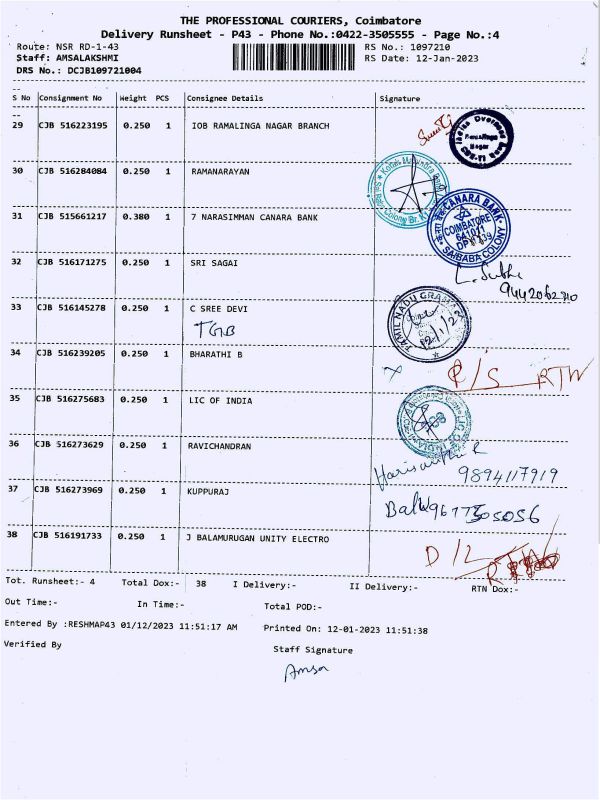 THE PROFESSIONAL COURIERS, Coimbatore
Delivery Runsheet - P43 - Phone No.:0422-3505555 - Page No.:4
Route: NSR RD-1-43 RS No.: 1097210
Staff: AMSALAKSHMI RS Date: 12-Jan-2023
DRS No.: DCJB109721004
S No Consignment No Weight PCS Consignee Details Signature
29 CJB 516223195 0.250 1 IOB RAMALINGA NAGAR BRANCH
30 CJB 516284084 0.250 1 RAMANARAYAN
31 CJB 515661217 0.380 1 7 NARASIMMAN CANARA BANK
CANARA BANK
COIMBATORE
641011
SAIBABA COLONY
32 CJB 516171275 0.250 1 SRI SAGAI
33 CJB 516145278 0.250 1 C SREE DEVI
TGB
TAMIL NADU GRAMA
12/1/23
34 CJB 516239205 0.250 1 BHARATHI B
R/S RTN
35 CJB 516275683 0.250 1 LIC OF INDIA
36 CJB 516273629 0.250 1 RAVICHANDRAN
9894117919
37 CJB 516273969 0.250 1 KUPPURAJ
38 CJB 516191733 0.250 1 J BALAMURUGAN UNITY ELECTRO
D/L
Tot. Runsheet:- 4 Total Dox:- 38 I Delivery:- II Delivery:- RTN Dox:-
Out Time:- In Time:- Total POD:-
Entered By :RESHMAP43 01/12/2023 11:51:17 AM Printed On: 12-01-2023 11:51:38
Verified By Staff Signature
Amsa